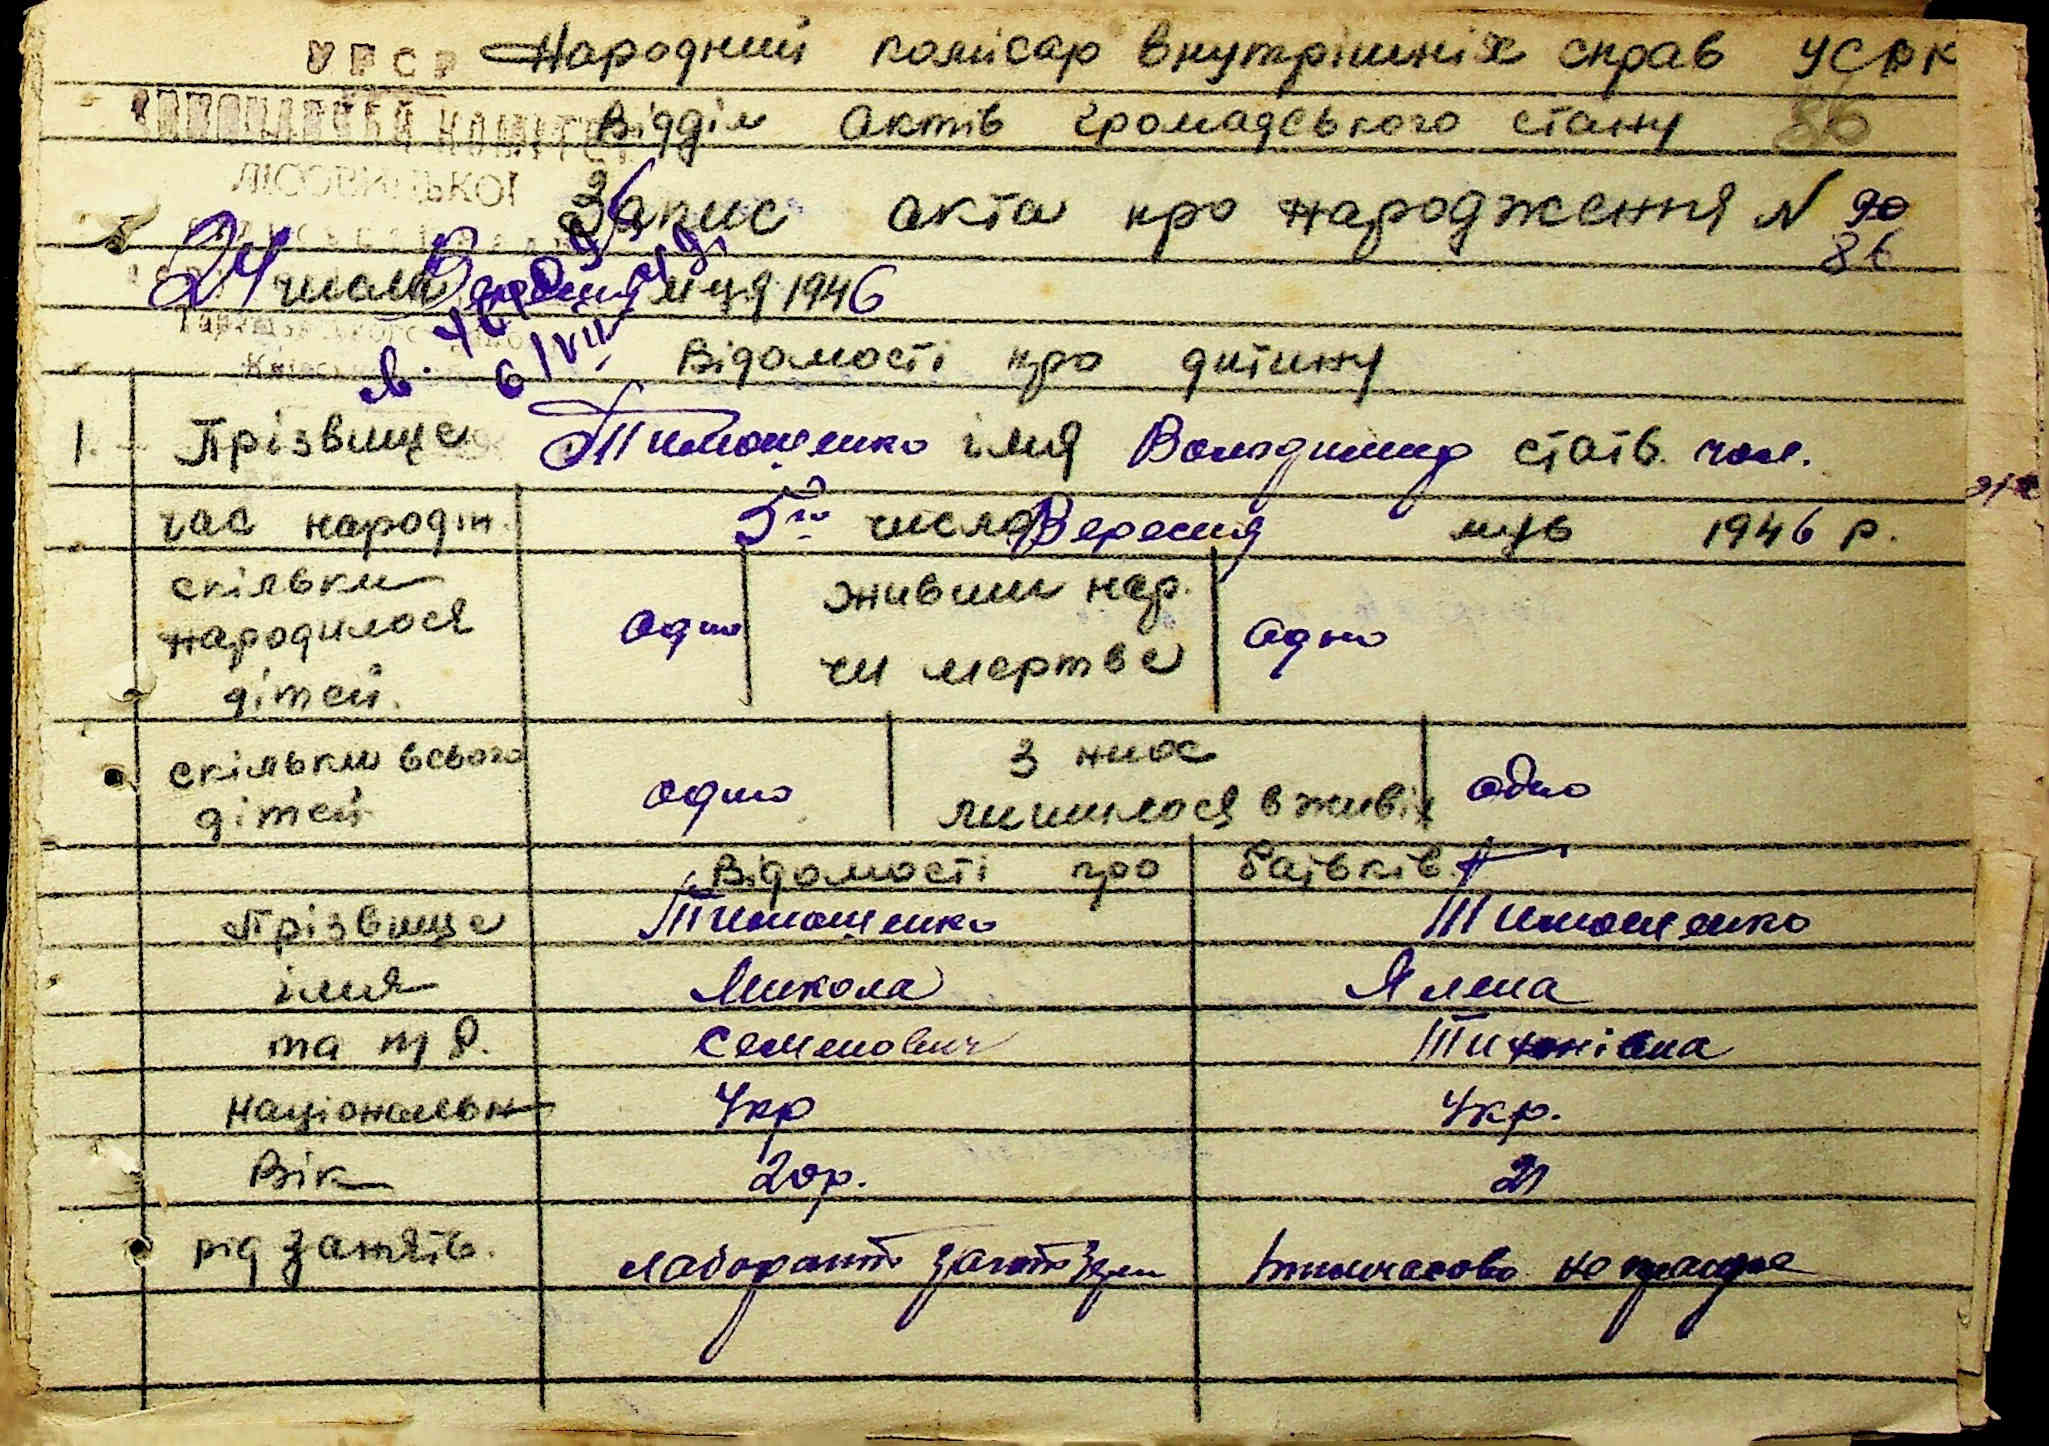 УРСР
Народний комісар внутрішніх справ УСРК
Виконавчий комітет
Відділ Актів громадського стану 86
Лісовицької
Запис акта про народження N 90
86
24 числа Вересня м-ця 1946
6/VII
Відомості про дитину
1. Прізвище Тимошенко імя Володимир стать чол.
час народж. 5го число Вересня м-ць 1946 р.
скільки народилося дітей. одно живими нар. чи мертве одно
скільки всього дітей одно з них лишилося в живіх одно
Відомості про батьків
Прізвище Тимошенко Тимошенко
імя Микола Ялена
та п/б. Семенович Тихонівна
Національн Укр Укр.
Вік 20р. 21
рід занять. лаборант Заготзерн тимчасово не працює